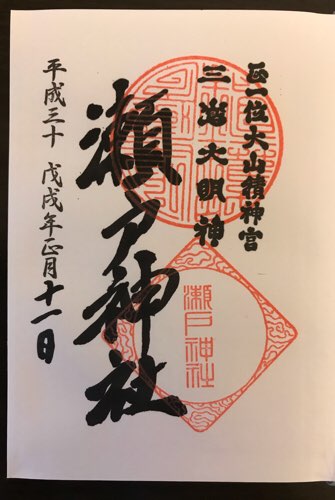 正一位大山積神宮
三島大明神
瀬戸神社
平成三十 戊戌年正月十一日
瀬戸神社